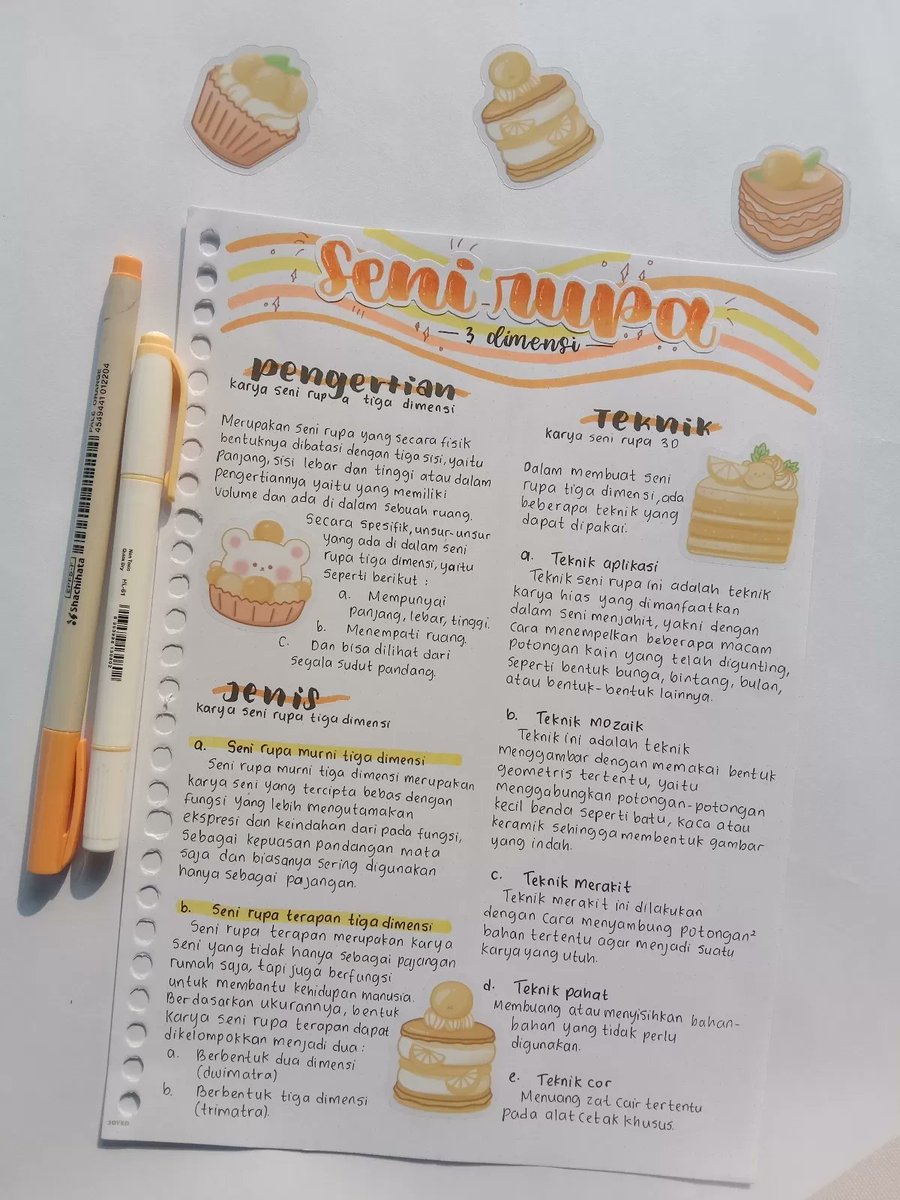 seni rupa
— 3 dimensi —
Pengertian
karya seni rupa tiga dimensi
Merupakan seni rupa yang secara fisik
bentuknya dibatasi dengan tiga sisi, yaitu
panjang, sisi lebar dan tinggi atau dalam
pengertiannya yaitu yang memiliki
volume dan ada di dalam sebuah ruang.
Secara spesifik, unsur-unsur
yang ada di dalam seni
rupa tiga dimensi, yaitu
seperti berikut :
a. Mempunyai
panjang, lebar, tinggi.
b. Menempati ruang.
c. Dan bisa dilihat dari
segala sudut pandang.
Jenis
karya seni rupa tiga dimensi
a. Seni rupa murni tiga dimensi
Seni rupa murni tiga dimensi merupakan
karya seni yang tercipta bebas dengan
fungsi yang lebih mengutamakan
ekspresi dan keindahan dari pada fungsi,
sebagai kepuasan pandangan mata
saja dan biasanya sering digunakan
hanya sebagai pajangan.
b. Seni rupa terapan tiga dimensi
Seni rupa terapan merupakan karya
seni yang tidak hanya sebagai pajangan
rumah saja, tapi juga berfungsi
untuk membantu kehidupan manusia.
Berdasarkan ukurannya, bentuk
karya seni rupa terapan dapat
dikelompokkan menjadi dua :
a. Berbentuk dua dimensi
(dwimatra)
b. Berbentuk tiga dimensi
(trimatra).
Teknik
karya seni rupa 3D
Dalam membuat seni
rupa tiga dimensi, ada
beberapa teknik yang
dapat dipakai.
a. Teknik aplikasi
Teknik seni rupa ini adalah teknik
karya hias yang dimanfaatkan
dalam seni menjahit, yakni dengan
cara menempelkan beberapa macam
potongan kain yang telah digunting,
seperti bentuk bunga, bintang, bulan,
atau bentuk-bentuk lainnya.
b. Teknik mozaik
Teknik ini adalah teknik
menggambar dengan memakai bentuk
geometris tertentu, yaitu
menggabungkan potongan-potongan
kecil benda seperti batu, kaca atau
keramik sehingga membentuk gambar
yang indah.
c. Teknik merakit
Teknik merakit ini dilakukan
dengan cara menyambung potongan²
bahan tertentu agar menjadi suatu
karya yang utuh.
d. Teknik pahat
Membuang atau menyisihkan bahan-
bahan yang tidak perlu
digunakan.
e. Teknik cor
Menuang zat cair tertentu
pada alat cetak khusus.
PALE ORANGE
4549441 012204
Shachihata
HL-61
JOYKO